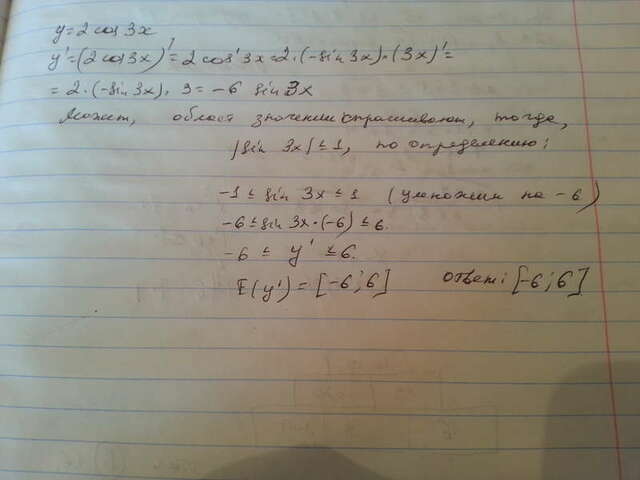 y = 2 cos 3x
y' = (2 cos 3x)' = 2 cos' 3x = 2·(-sin 3x)·(3x)' =
= 2·(-sin 3x)·3 = -6 sin 3x
Может, област значении спрашивают, тогда,
|sin 3x| ≤ 1, по определению:
-1 ≤ sin 3x ≤ 1 (умножим на -6)
-6 ≤ sin 3x·(-6) ≤ 6.
-6 ≤ y' ≤ 6.
E(y') = [-6; 6] ответ: [-6; 6]